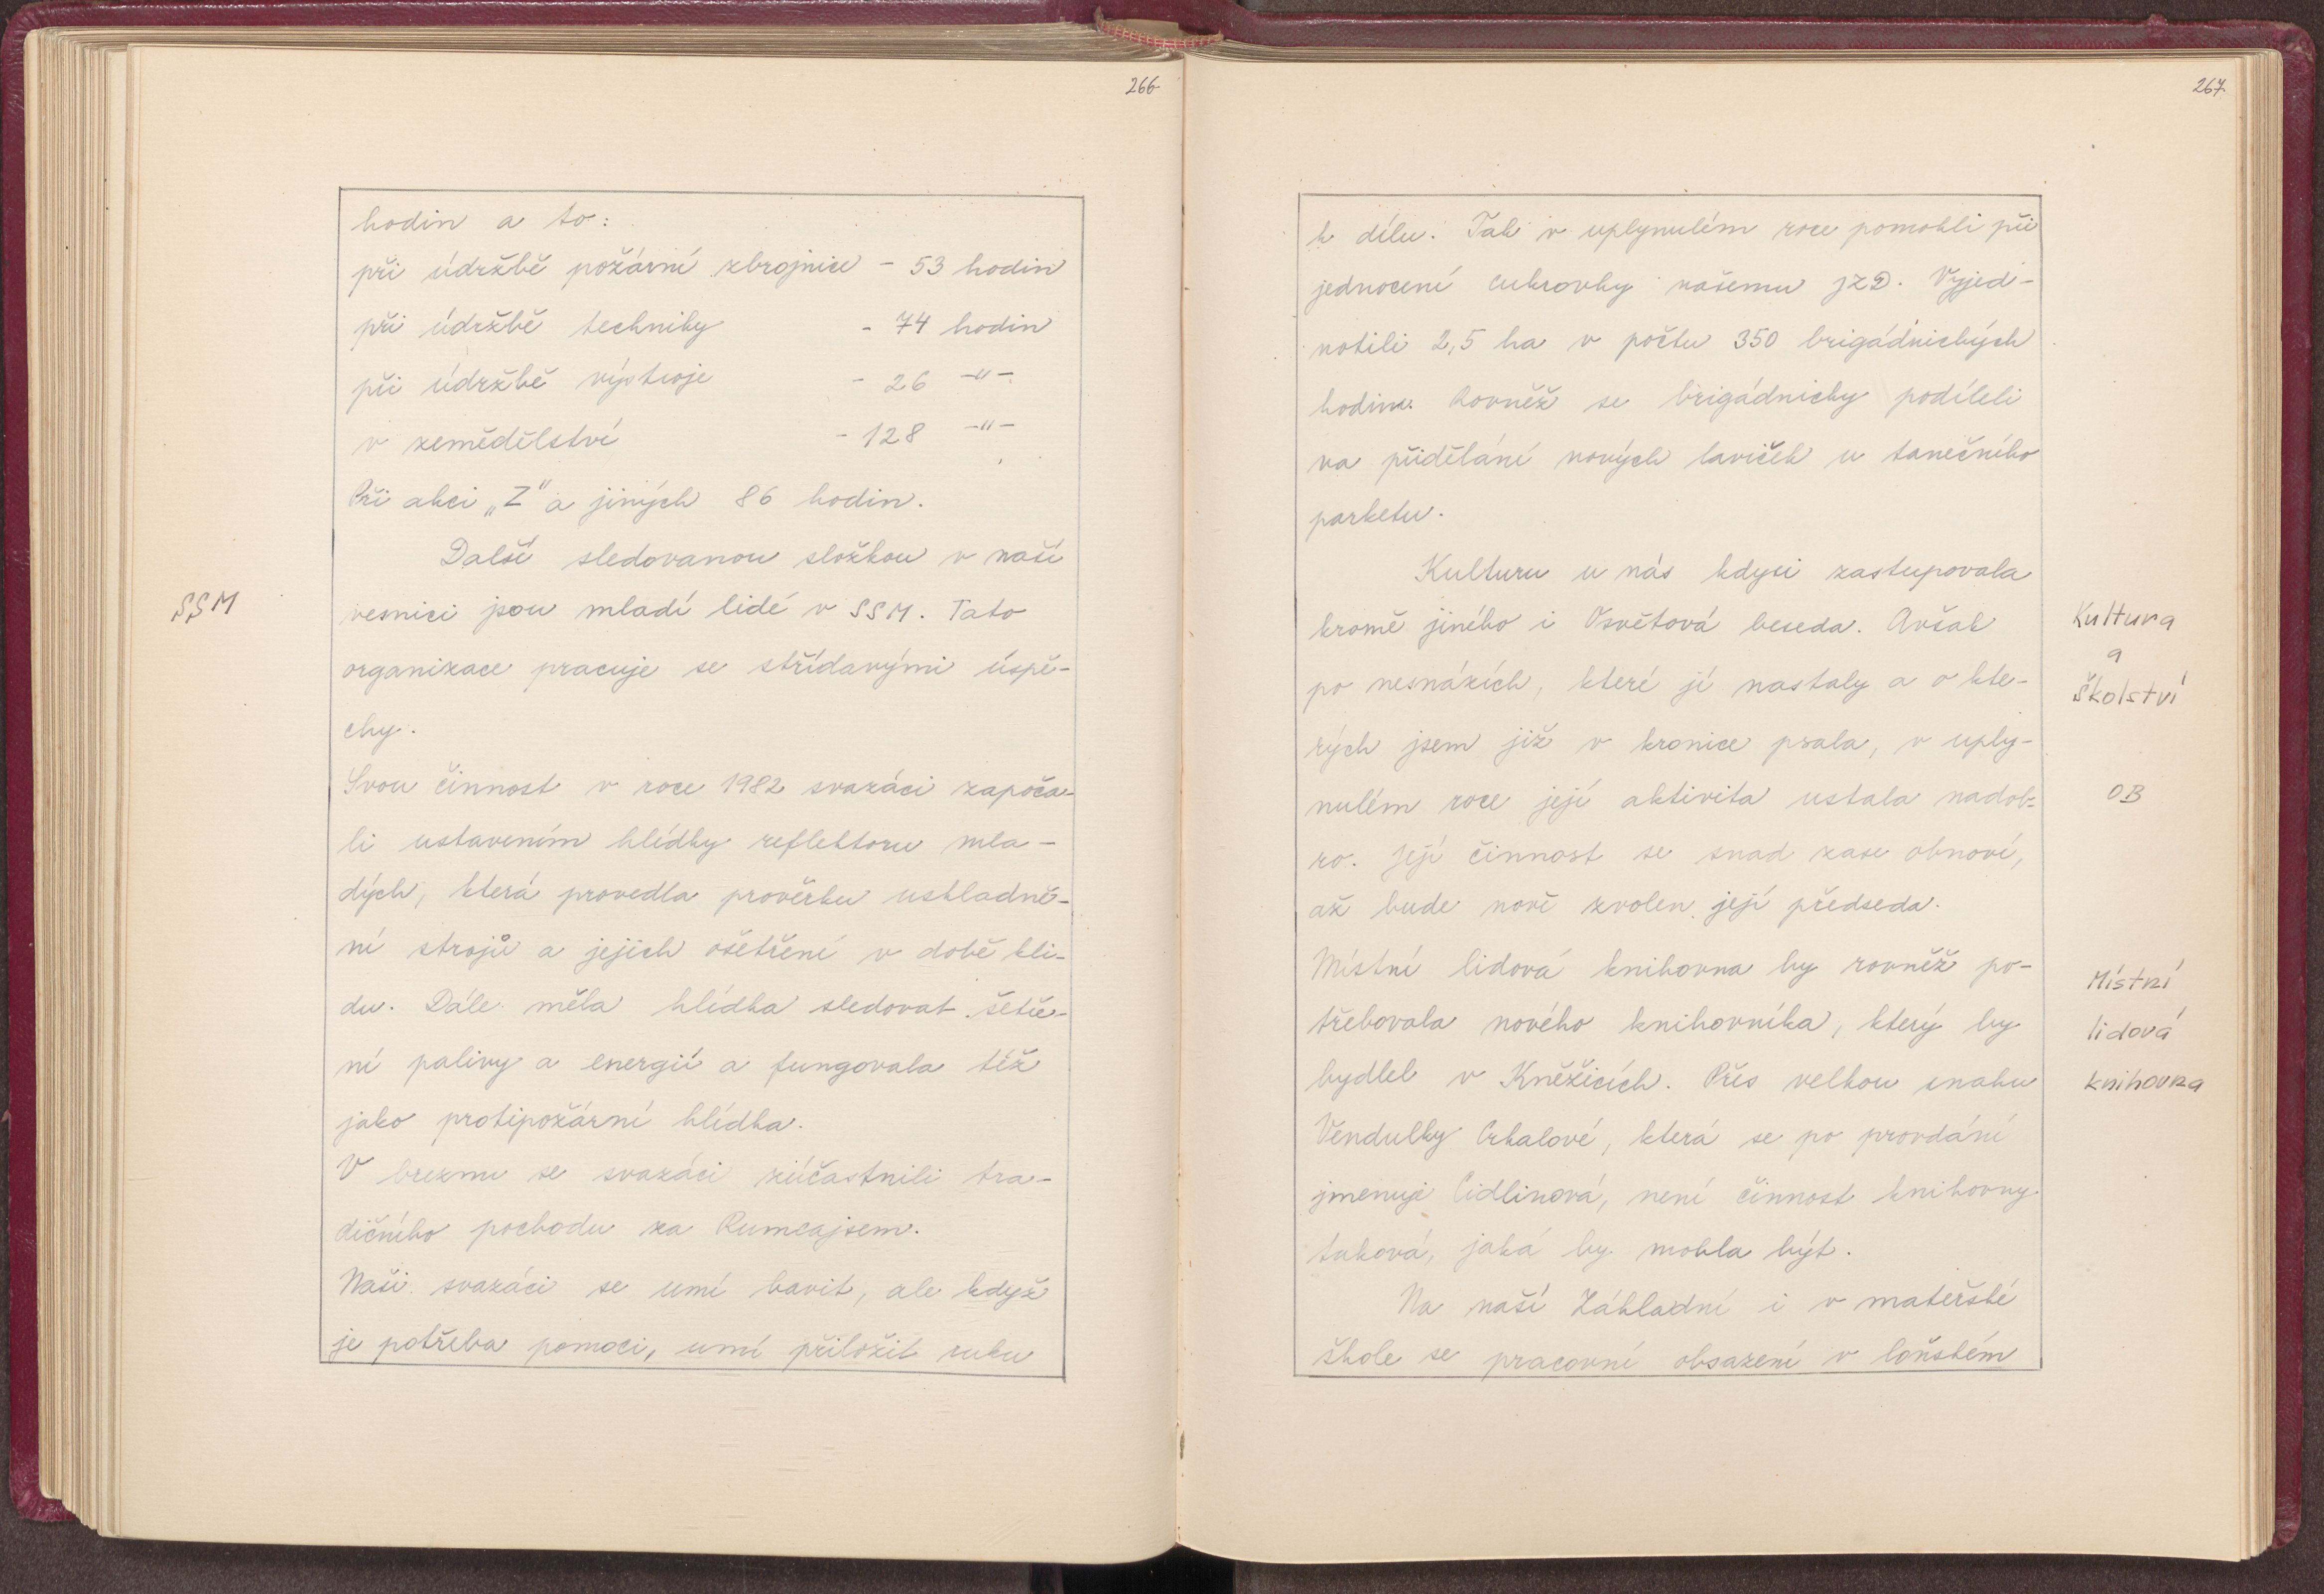 266
hodin a to:
při údržbě požární zbrojnice - 53 hodin
při údržbě techniky - 74 hodin
při údržbě výstroje - 26 -"-
v zemědělství - 128 -"-
Při akci „Z" a jiných 86 hodin.
Další sledovanou složkou v naší
SSM
vesnici jsou mladí lidé v SSM. Tato
organizace pracuje se střídavými úspě-
chy.
Svou činnost v roce 1982 svazáci započa-
li ustavením hlídky reflektoru mla-
dých, která provedla prověrku uskladně-
ní strojů a jejich ošetření v době kli-
du. Dále měla hlídka sledovat šetře-
ní palivy a energií a fungovala též
jako protipožární hlídka.
V breznu se svazáci zúčastnili tra-
dičního pochodu za Rumcajsem.
Naši svazáci se umí bavit, ale když
je potřeba pomoci, umí přiložit ruku
267
k dílu. Tak v uplynulém roce pomohli při
jednocení cukrovky našemu JZD. Vyjed-
notili 2,5 ha v počtu 350 brigádnických
hodin. Rovněž se brigádnicky podíleli
na přidělání nových laviček u tanečního
parketu.
Kulturu u nás kdysi zastupovala
kromě jiného i Osvětová beseda. Avšak
po nesnázích, které jí nastaly a o kte-
rých jsem již v kronice psala, v uply-
nulém roce její aktivita ustala nadob-
ro. Její činnost se snad zase obnoví,
až bude nově zvolen její předseda.
Místní lidová knihovna by rovněž po-
třebovala nového knihovníka, který by
bydlel v Kněžicích. Přes velkou snahu
Vendulky Crkalové, která se po provdání
jmenuje Cidlinová, není činnost knihovny
taková, jaká by mohla být.
Na naší Základní i v mateřské
škole se pracovní obsazení v loňském
Kultura
a
školství
OB
Místní
lidová
knihovna